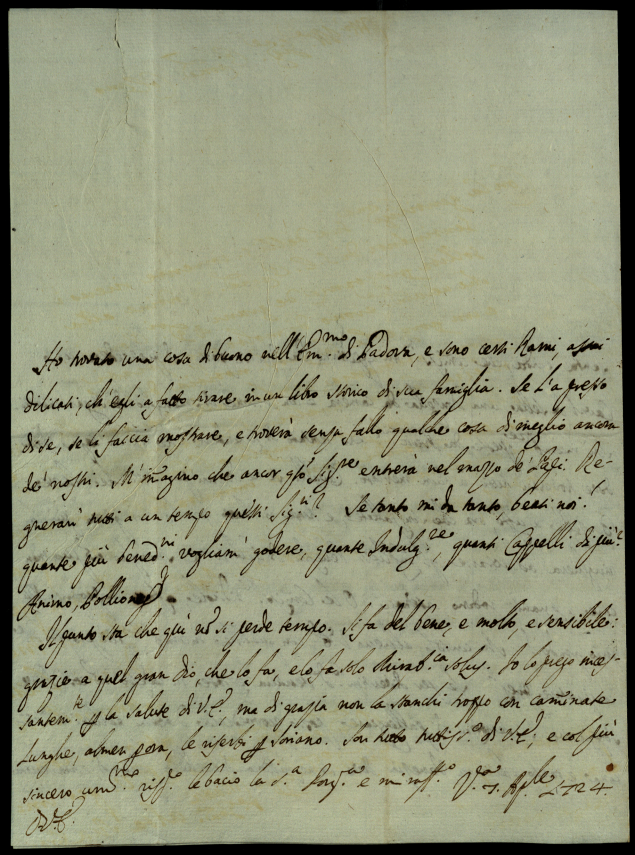 Ho trovato una cosa di buono nell'Em.mo di Padova, e sono certi Rami, assai
dilicati, ch'egli a fatto tirare in un libro storico di sua famiglia. Se l'a presso
di se, se la faccia mostrare, e troverà senza fallo qualche cosa di meglio ancora
de' nostri. M'imagino che ancor entrerà nel mazzo de' Papi. Re-
gnerann' tutti a un tempo questi Sig.ri? Se tanto mi da tanto, beati noi!
quante più bened.ni vogliam' godere, quante Indulg.ze, quanti Cappelli di più!
Animo,
Il punto sta che qui nō si perde tempo. Si fa del bene, e molto, e sensibile:
grazie a quel gran Dio, che lo fa, e lo fa solo Mirab.ia solus. Io lo prego inces-
santem.te p la salute di V.E., ma di grazia non la stanchi troppo con caminate
lunghe, almen p ora, le riserbi p Soriano. Son tutto tutto di V.E., e col più
sincero um.mo risp.o le bacio la S.a e mi raff.o 1724.
D.V.E.